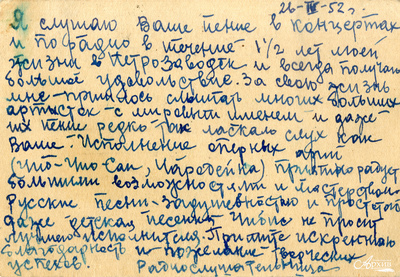 26-IV-52 г.
Я слушаю Ваше пение в концертах
и по радио в течение 1½ лет моей
жизни в Петрозаводске и всегда получаю
большое удовольствие. За свою жизнь
мне пришлось слышать многих больших
артисток с мировым именем и даже
их пение редко так ласкало слух как
Ваше. Исполнение оперных арий
(Чио-Чио-Сан, Чародейка) приятно радует
большими возможностями и мастерством
Русские песни - задушевностью и простотой
даже детская песенка Чибис не просит
лучшего исполнителя. Примите искреннюю
благодарность и пожелание творческих
успехов. Радиослушательница